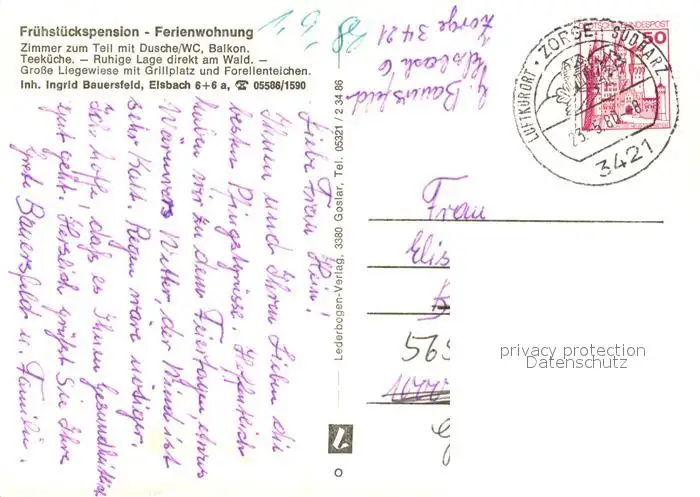 Frühstückspension - Ferienwohnung
Zimmer zum Teil mit Dusche/WC, Balkon.
Teeküche. — Ruhige Lage direkt am Wald. —
Große Liegewiese mit Grillplatz und Forellenteichen.
Inh. Ingrid Bauersfeld, Elsbach 6+6 a, ☎ 05586/1590
Bauersfeld
Elsbach 6
Zorge 3421
Liebe Frau Hein!
Ihnen und Ihren Lieben die
besten Pfingstgrüsse. Hoffentlich
haben wir zu den Feiertagen etwas
Wärmeres Wetter, der Wind ist
sehr kalt. Regen wäre nötiger.
Ich hoffe, daß es Ihnen gesundheitlich
gut geht. Herzlich grüßt Sie Ihre
Grete Bauersfeld u. Familie.
Lederbogen-Verlag, 3380 Goslar, Tel. 05321 / 2 34 86
DEUTSCHE BUNDESPOST
50
LUFTKURORT · ZORGE SÜDHARZ
23.-5.80.-8
3421
Frau
Elis
565
privacy protection
Datenschutz